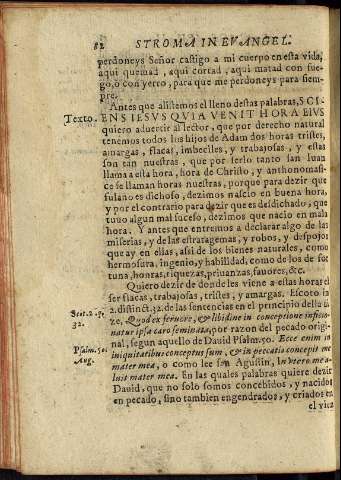 82 STROMA IN EVANGEL.
perdoneys Señor castigo a mi cuerpo en esta vida,
aqui quemad, aqui cortad, aqui matad con fue-
go, ò con yerro, para que me perdoneys para siem-
pre.
Antes que alistemos el lleno destas palabras, SCI-
Texto. ENS IESVS QVIA VENIT HORA EIVS
quiero aduertir al lector, que por derecho natural
tenemos todos los hijos de Adam dos horas tristes,
amargas, flacas, imbeciles, y trabajosas, y estas
son tan nuestras, que por serlo tanto san Iuan
llama a esta hora, hora de Christo, y anthonomasi-
ce se llaman horas nuestras, porque para dezir que
fulano es dichoso, dezimos nascio en buena hora,
y por el contrario para dezir que es desdichado, que
tuuo algun mal sucesso, dezimos que nacio en mala
hora. Y antes que entremos a declarar algo de las
miserias, y de las estratagemas, y robos, y despojos
que ay en ellas, assi de los bienes naturales, como
hermosura, ingenio, y habilidad, como de los de for
tuna, honras, riquezas, priuanzas, fauores, &c.
Quiero dezir de donde les viene a estas horas el
ser flacas, trabajosas, tristes, y amargas. Escoto in
Scot. 2. d. 2. distinct. 32. de las sentencias en el principio della di
32. ze, Quod ex feruore, & libidine in conceptione infisio-
natur ipsa caro seminata, por razon del pecado origi-
nal, segun aquello de Dauid Psalm. 50. Ecce enim in
Psalm. 50. iniquitatibus conceptus sum, & in peccatis concepit me
Aug. mater mea, o como lee san Agustin, In vtero me a-
luit mater mea. En las quales palabras quiere dezir
Dauid, que no solo somos concebidos, y nacidos
en pecado, sino tambien engendrados, y criados en
el vien